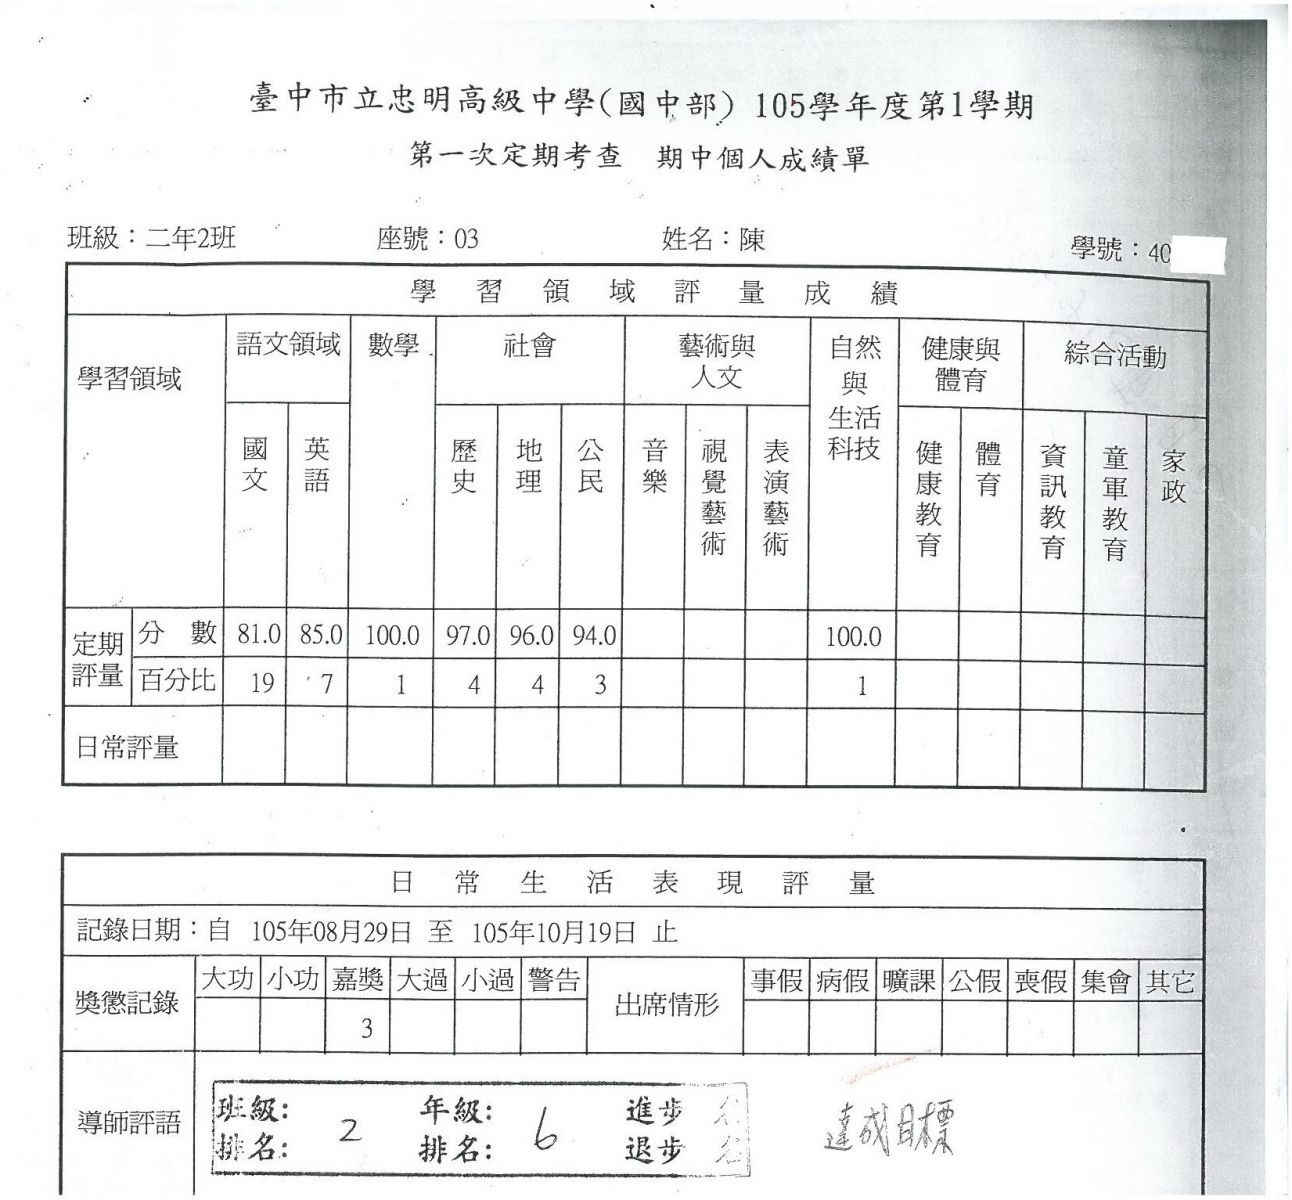 臺中市立忠明高級中學(國中部) 105學年度第1學期
第一次定期考查 期中個人成績單
班級：二年2班 座號：03 姓名：陳 學號：40
學習領域評量成績
學習領域 語文領域 數學 社會 藝術與人文 自然與生活科技 健康與體育 綜合活動
國文 英語 歷史 地理 公民 音樂 視覺藝術 表演藝術 健康教育 體育 資訊教育 童軍教育 家政
定期評量 分數 81.0 85.0 100.0 97.0 96.0 94.0 100.0
百分比 19 7 1 4 4 3 1
日常評量
日常生活表現評量
記錄日期：自 105年08月29日 至 105年10月19日 止
獎懲記錄 大功 小功 嘉獎 大過 小過 警告 出席情形 事假 病假 曠課 公假 喪假 集會 其它
3
導師評語 班級排名: 2 年級排名: 6 進步 名 退步 名 達成目標